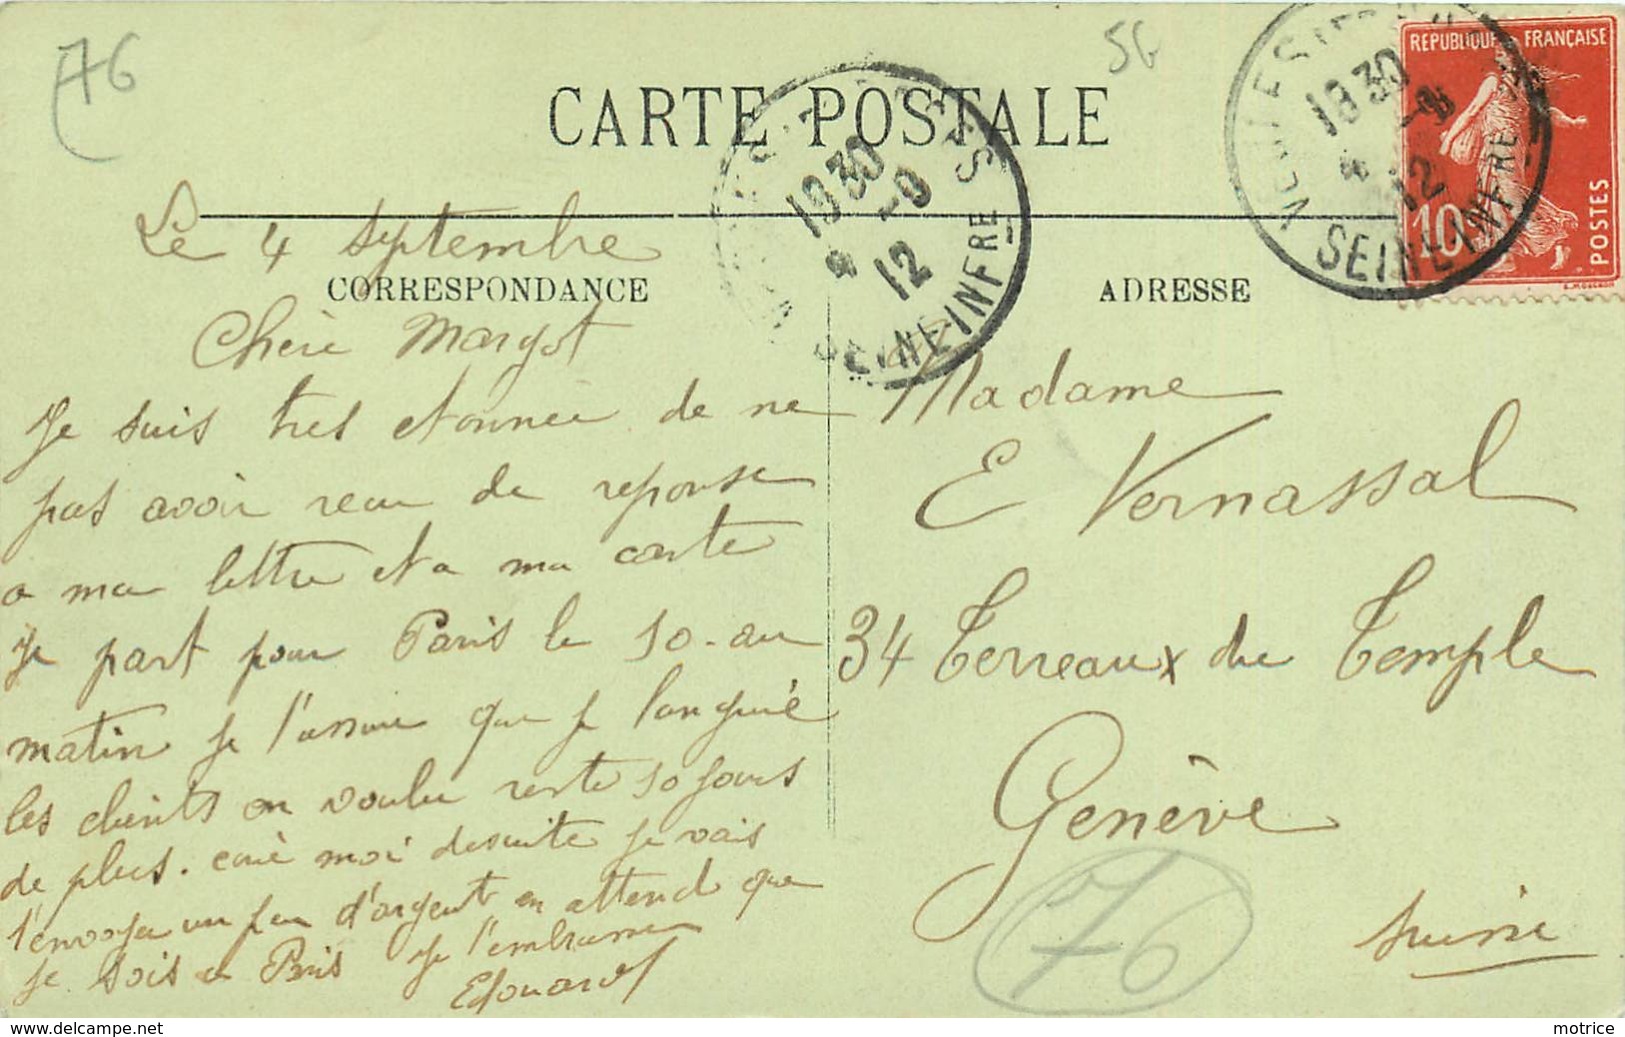 76
56
CARTE POSTALE
RÉPUBLIQUE FRANÇAISE
10
POSTES
1930
4 -9
12
SEINE-INFRE
1930
4 -9
12
SEINE-INFRE
CORRESPONDANCE
ADRESSE
Le 4 septembre
Chère Margot
Je suis tres etonnée de ne
pas avoir recu de reponse
a ma lettre et a ma carte
Je part pour Paris le 10 au
matin je t'assure que je languie
les clients on voulu reste 10 jours
de plus. ecrié moi desuite je vais
t'envoyer un peu d'argent en attend que
je sois a Paris je t'embrasse
Edouard
Madame
E Vernassal
34 Terreaux du Temple
Genève
Suisse
76
motrice